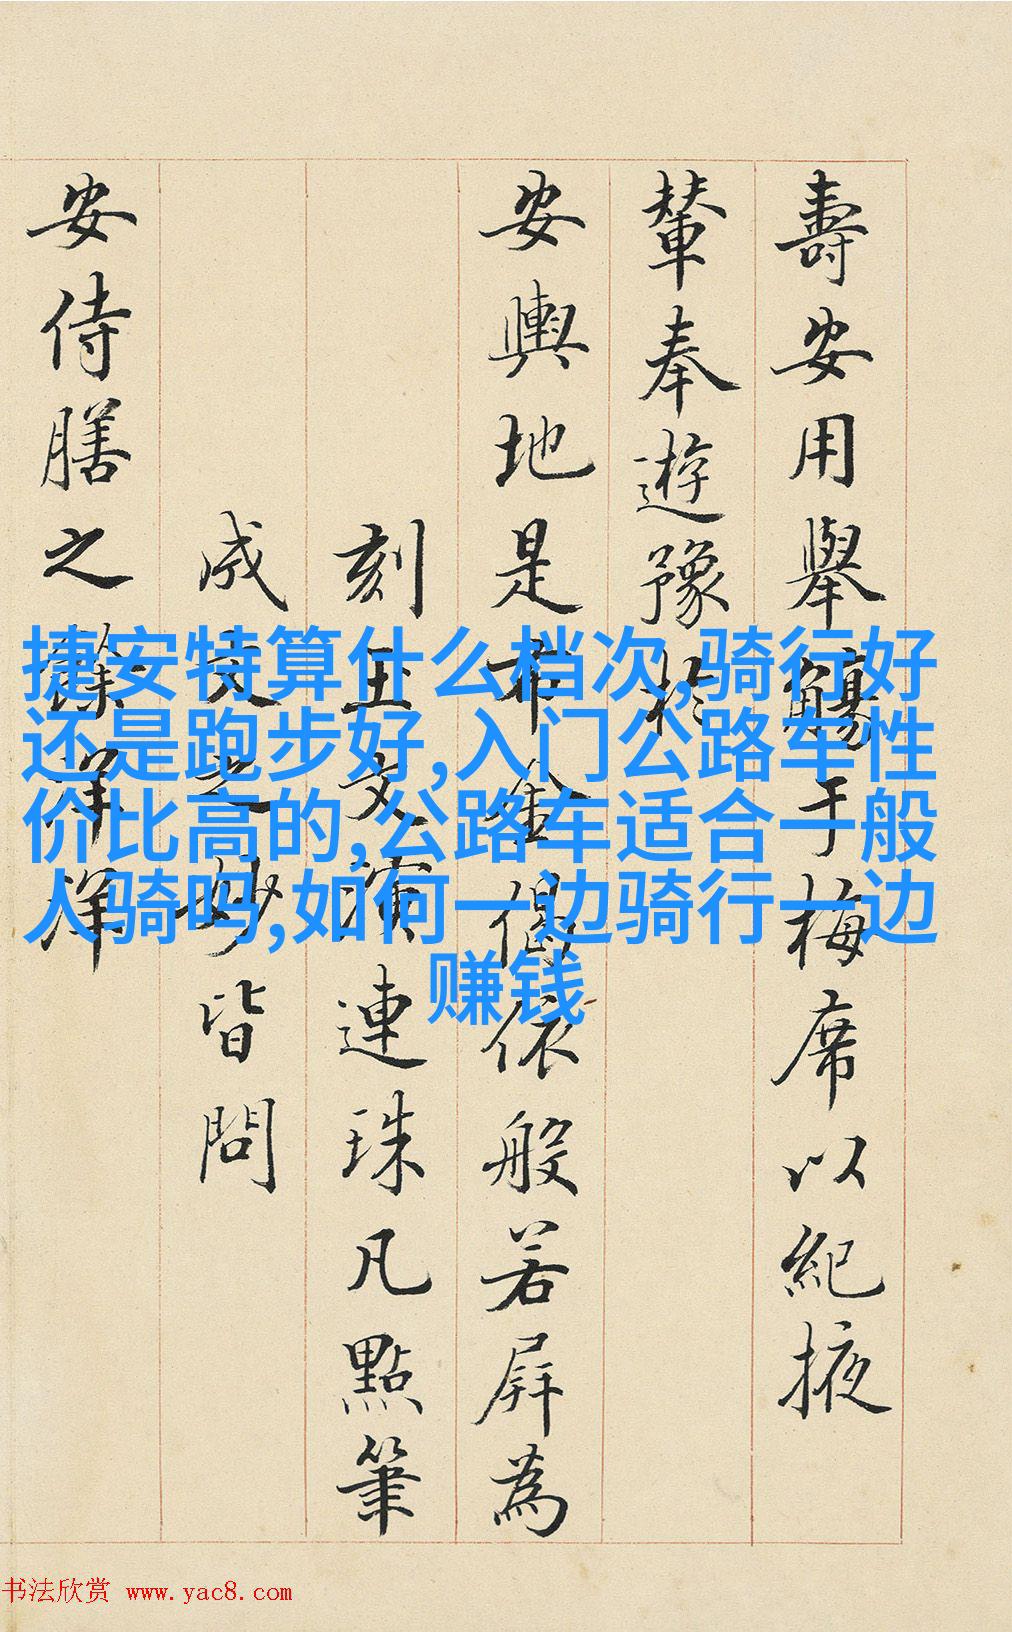 壽安用舉觴于梅席以紀掖
輦奉遊豫於
安輿地是布金偈依般若屏為
刻玉文演連珠凡點筆
成文之妙皆問
安侍膳之餘洋洋
捷安特算什么档次,骑行好
还是跑步好,入门公路车性
价比高的,公路车适合一般
人骑吗,如何一边骑行一边
赚钱
书法欣赏 www.yac8.com